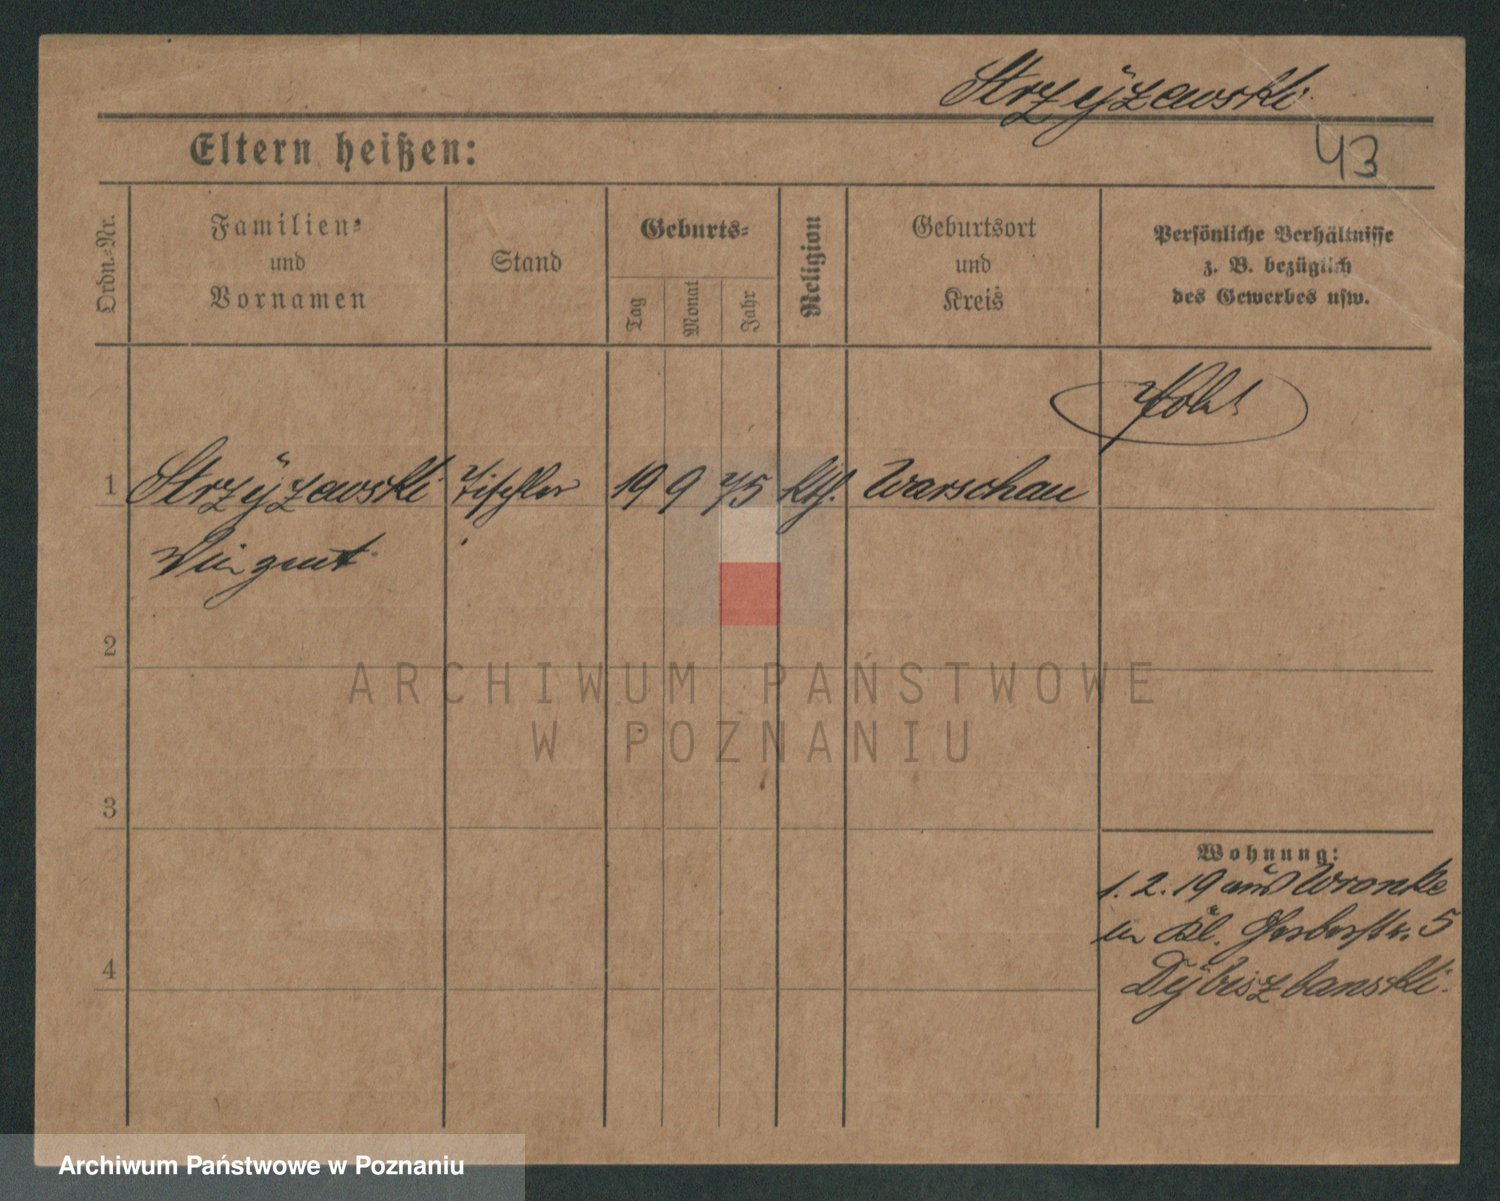 Strzÿżewski
43
Eltern heißen:
Ordn.-Nr.
Familien-
und
Vornamen
Stand
Geburts-
Tag
Monat
Jahr
Religion
Geburtsort
und
Kreis
Persönliche Verhältnisse
z. B. bezüglich
des Gewerbes usw.
1 Strzÿżewski Tischler 19 9 75 kth. Warschau
Vinzent
2
ARCHIWUM PAŃSTWOWE
W POZNANIU
3
Wohnung:
1.2.19 aus Wronke
in Kl. Gerberstr. 5
4
Dÿbiszbanski.
Archiwum Państwowe w Poznaniu